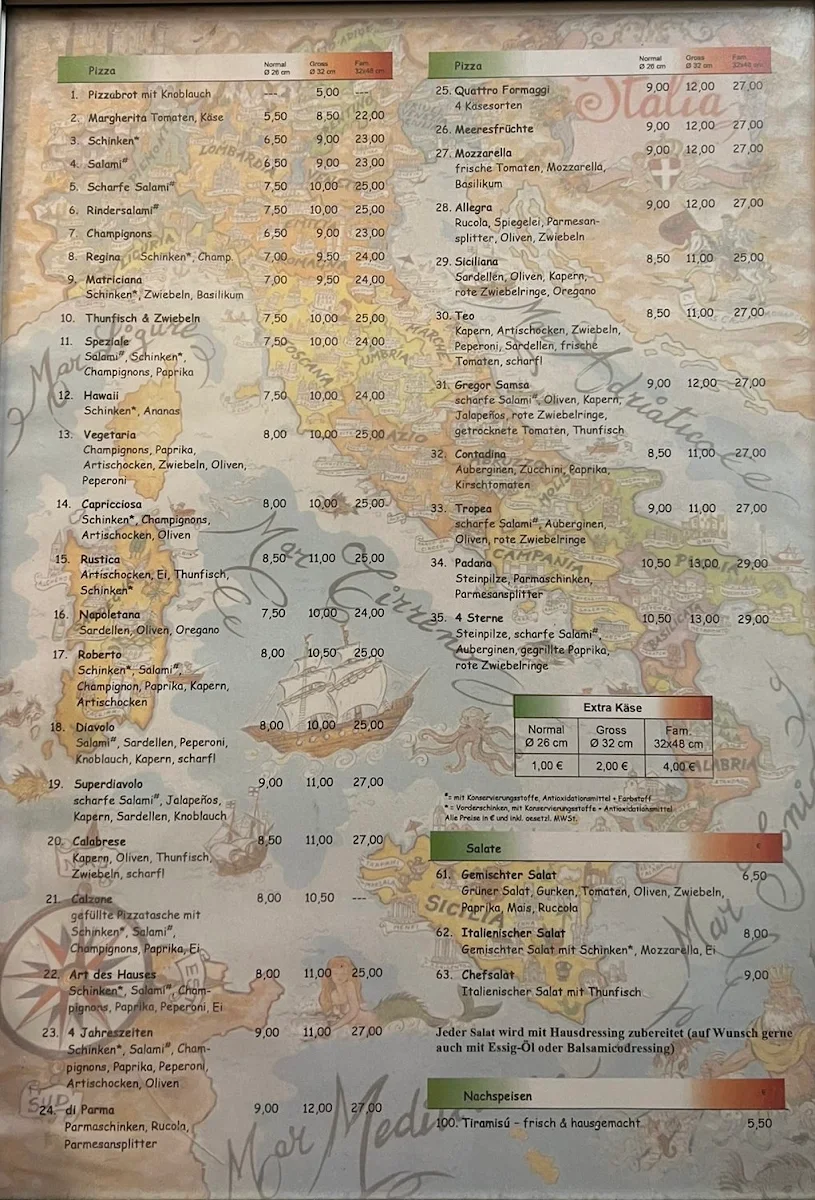 Pizza Normal Ø 26 cm Gross Ø 32 cm Fam. 32x48 cm
1. Pizzabrot mit Knoblauch --- 5,00 ---
2. Margherita Tomaten, Käse 5,50 8,50 22,00
3. Schinken* 6,50 9,00 23,00
4. Salami# 6,50 9,00 23,00
5. Scharfe Salami# 7,50 10,00 25,00
6. Rindersalami# 7,50 10,00 25,00
7. Champignons 6,50 9,00 23,00
8. Regina Schinken*, Champ. 7,00 9,50 24,00
9. Matriciana 7,00 9,50 24,00
Schinken*, Zwiebeln, Basilikum
10. Thunfisch & Zwiebeln 7,50 10,00 25,00
11. Speziale 7,50 10,00 24,00
Salami#, Schinken*,
Champignons, Paprika
12. Hawaii 7,50 10,00 24,00
Schinken*, Ananas
13. Vegetaria 8,00 10,00 25,00
Champignons, Paprika,
Artischocken, Zwiebeln, Oliven,
Peperoni
14. Capricciosa 8,00 10,00 25,00
Schinken*, Champignons,
Artischocken, Oliven
15. Rustica 8,50 11,00 25,00
Artischocken, Ei, Thunfisch,
Schinken*
16. Napoletana 7,50 10,00 24,00
Sardellen, Oliven, Oregano
17. Roberto 8,00 10,50 25,00
Schinken*, Salami#,
Champignon, Paprika, Kapern,
Artischocken
18. Diavolo 8,00 10,00 25,00
Salami#, Sardellen, Peperoni,
Knoblauch, Kapern, scharf!
19. Superdiavolo 9,00 11,00 27,00
scharfe Salami#, Jalapeños,
Kapern, Sardellen, Knoblauch
20. Calabrese 8,50 11,00 27,00
Kapern, Oliven, Thunfisch,
Zwiebeln, scharf!
21. Calzone 8,00 10,50 ---
gefüllte Pizzatasche mit
Schinken*, Salami#,
Champignons, Paprika, Ei
22. Art des Hauses 8,00 11,00 25,00
Schinken*, Salami#, Cham-
pignons, Paprika, Peperoni, Ei
23. 4 Jahreszeiten 9,00 11,00 27,00
Schinken*, Salami#, Cham-
pignons, Paprika, Peperoni,
Artischocken, Oliven
24. di Parma 9,00 12,00 27,00
Parmaschinken, Rucola,
Parmesansplitter
Pizza Normal Ø 26 cm Gross Ø 32 cm Fam. 32x48 cm
25. Quattro Formaggi 9,00 12,00 27,00
4 Käsesorten
26. Meeresfrüchte 9,00 12,00 27,00
27. Mozzarella 9,00 12,00 27,00
frische Tomaten, Mozzarella,
Basilikum
28. Allegra 9,00 12,00 27,00
Rucola, Spiegelei, Parmesan-
splitter, Oliven, Zwiebeln
29. Siciliana 8,50 11,00 25,00
Sardellen, Oliven, Kapern,
rote Zwiebelringe, Oregano
30. Teo 8,50 11,00 27,00
Kapern, Artischocken, Zwiebeln,
Peperoni, Sardellen, frische
Tomaten, scharf!
31. Gregor Samsa 9,00 12,00 27,00
scharfe Salami#, Oliven, Kapern,
Jalapeños, rote Zwiebelringe,
getrocknete Tomaten, Thunfisch
32. Contadina 8,50 11,00 27,00
Auberginen, Zucchini, Paprika,
Kirschtomaten
33. Tropea 9,00 11,00 27,00
scharfe Salami#, Auberginen,
Oliven, rote Zwiebelringe
34. Padana 10,50 13,00 29,00
Steinpilze, Parmaschinken,
Parmesansplitter
35. 4 Sterne 10,50 13,00 29,00
Steinpilze, scharfe Salami#,
Auberginen, gegrillte Paprika,
rote Zwiebelringe
Extra Käse
Normal Gross Fam.
Ø 26 cm Ø 32 cm 32x48 cm
1,00 € 2,00 € 4,00 €
#= mit Konservierungsstoffe, Antioxidationsmittel + Farbstoff
* = Vorderschinken, mit Konservierungsstoffe + Antioxidationsmittel
Alle Preise in € und inkl. gesetzl. MWSt.
Salate €
61. Gemischter Salat 6,50
Grüner Salat, Gurken, Tomaten, Oliven, Zwiebeln,
Paprika, Mais, Ruccola
62. Italienischer Salat 8,00
Gemischter Salat mit Schinken*, Mozzarella, Ei
63. Chefsalat 9,00
Italienischer Salat mit Thunfisch
Jeder Salat wird mit Hausdressing zubereitet (auf Wunsch gerne
auch mit Essig-Öl oder Balsamicodressing)
Nachspeisen €
100. Tiramisú – frisch & hausgemacht 5,50
Italia
LOMBARDIA
LIGURIA
TOSCANA
UMBRIA
MARCHE
LAZIO
MOLISE
CAMPANIA
PUGLIA
BASILICATA
CALABRIA
SICILIA
Mar Ligure
Mar Adriatico
Mar Tirreno
Mar Ionio
Mar Medi
SUD